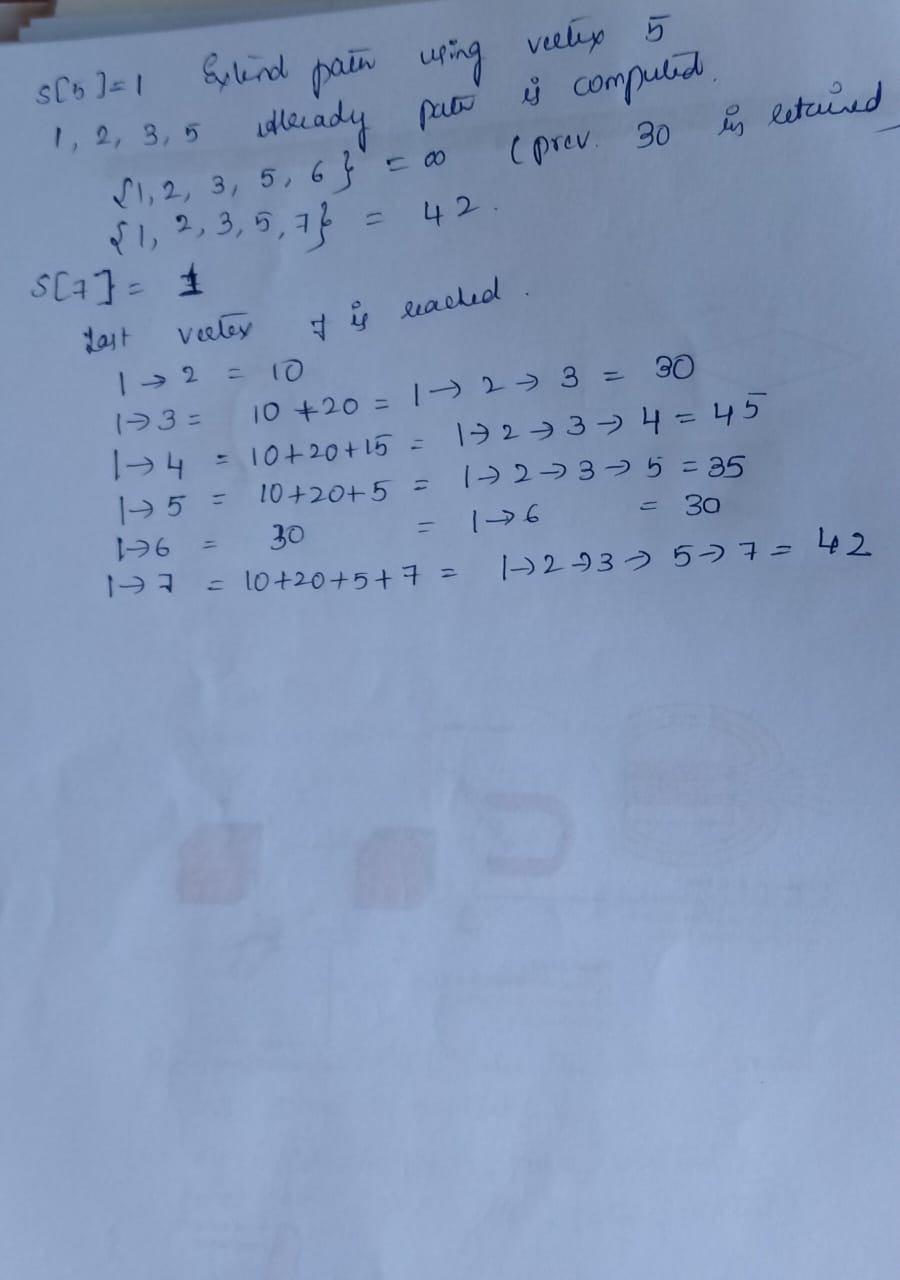 S[5]=1 Extend path using vertex 5
1, 2, 3, 5 already path is computed.
{1, 2, 3, 5, 6} = ∞ (prev. 30 is retained
{1, 2, 3, 5, 7} = 42.
S[7] = 1
Last vertex 7 is reached.
1→2 = 10
1→3 = 10+20 = 1→2→3 = 30
1→4 = 10+20+15 = 1→2→3→4 = 45
1→5 = 10+20+5 = 1→2→3→5 = 35
1→6 = 30 = 1→6 = 30
1→7 = 10+20+5+7 = 1→2→3→5→7 = 42